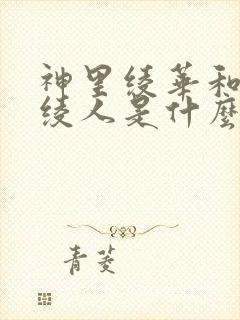 神里绫华和
绫人是什麼
青菱